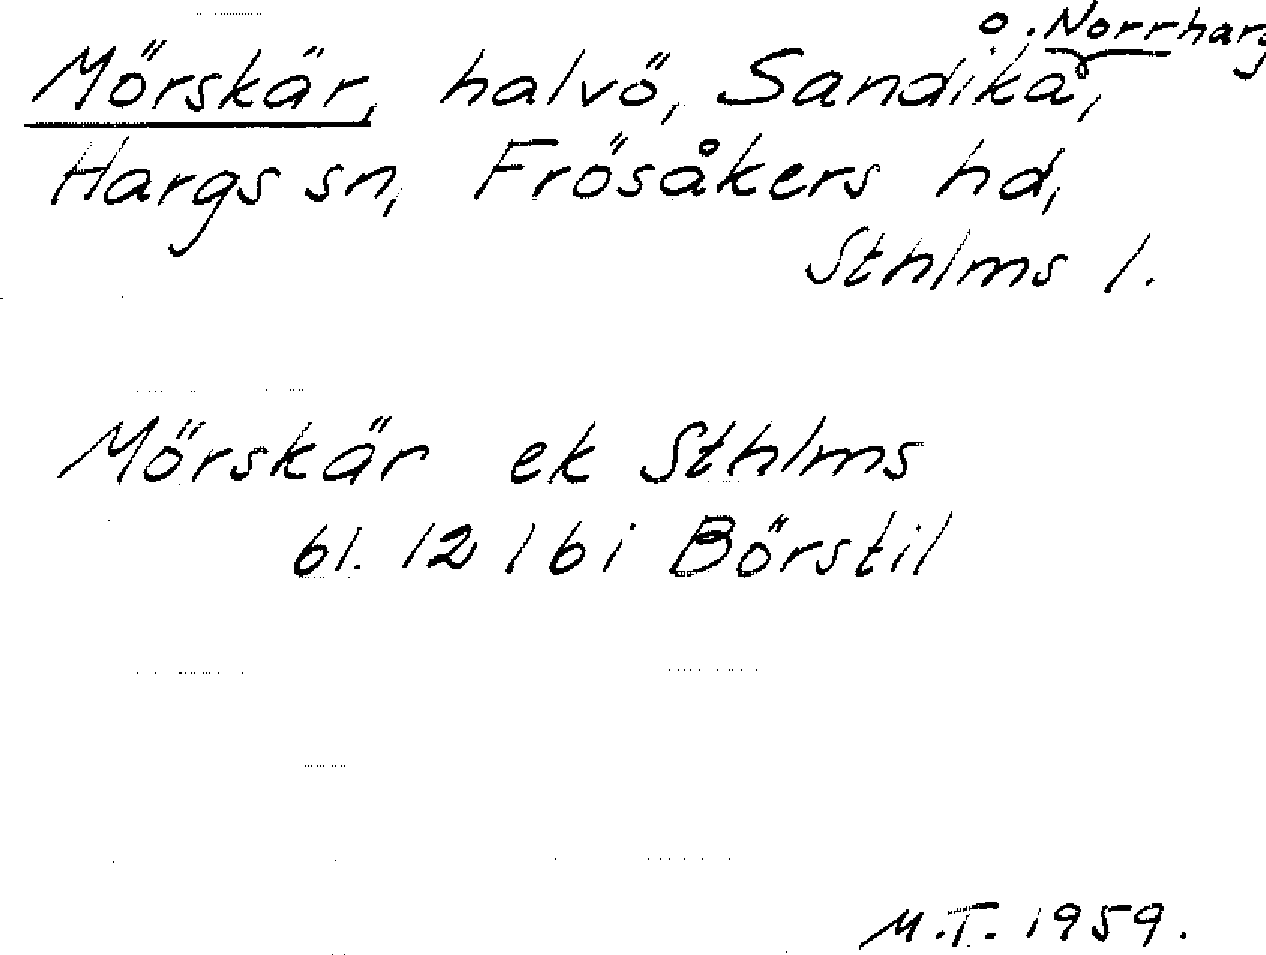 o. Norrharg
Mörskär, halvö, Sandika,
Hargs sn, Frösåkers hd,
Sthlms l.
Mörskär ek Sthlms
bl. 12 1 b i Börstil
M.T. 1959.